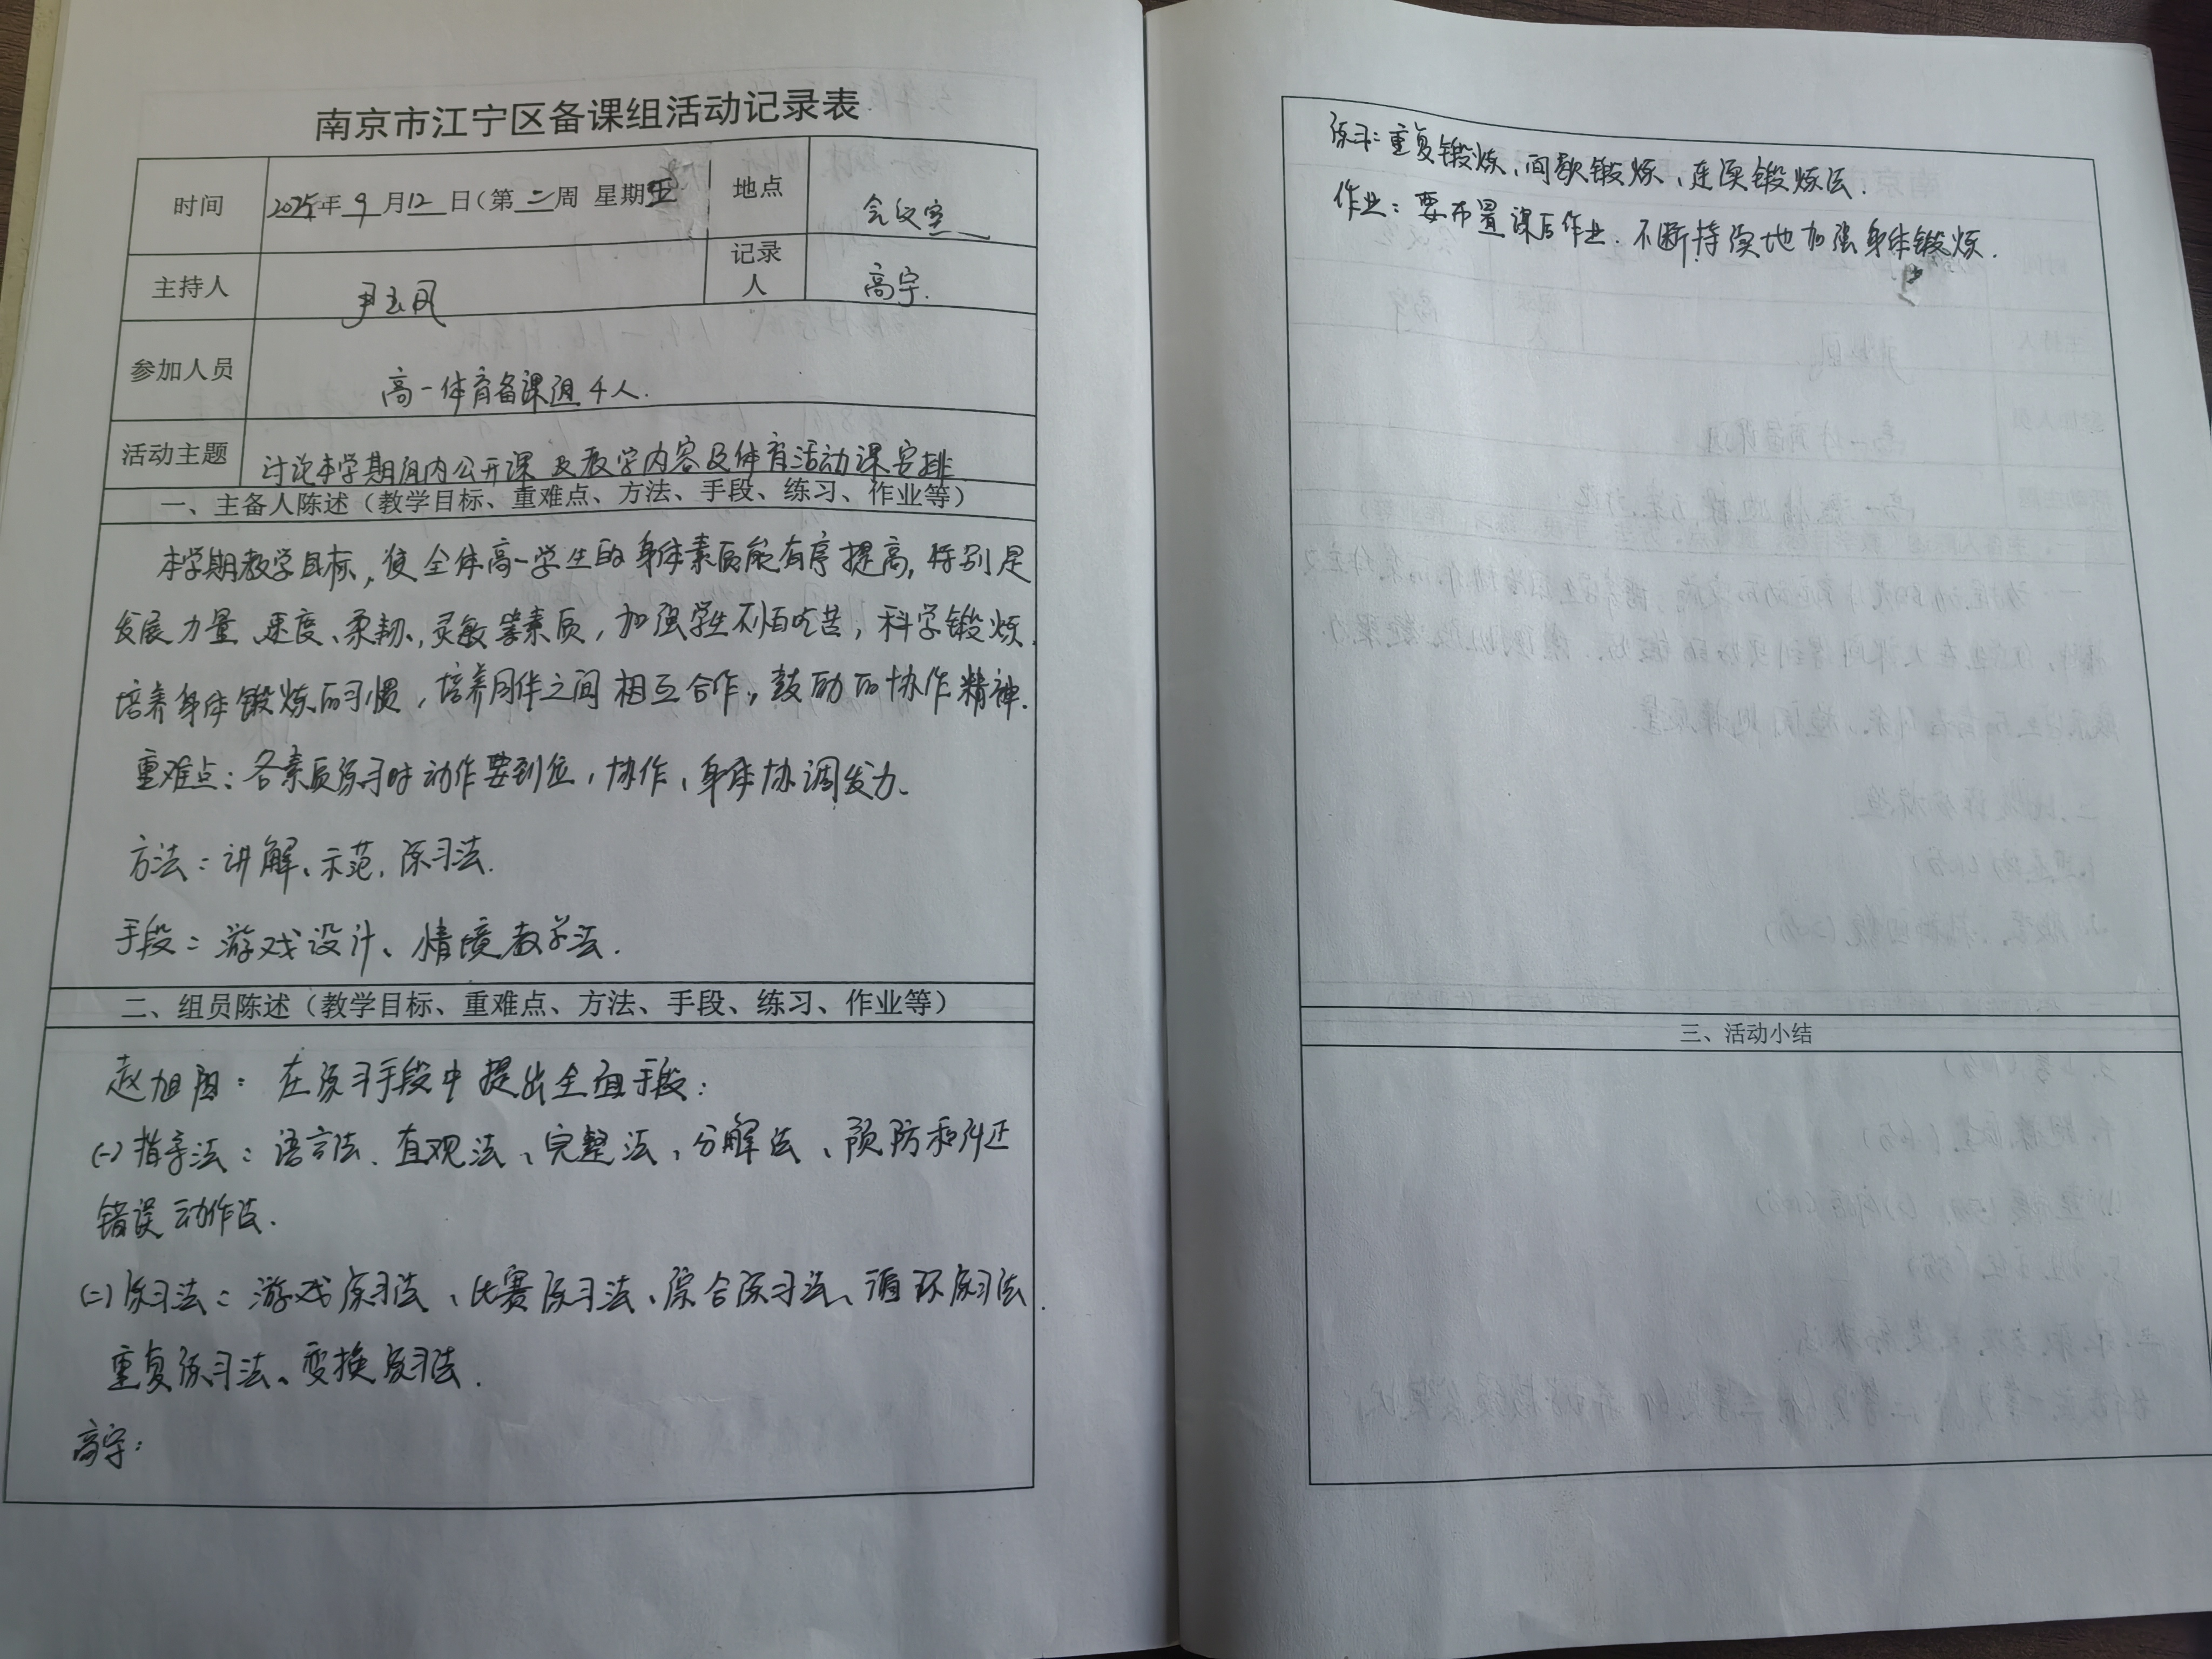 南京市江宁区备课组活动记录表
时间 2025年 9 月 12 日（第 二 周 星期五 地点 会议室
主持人 尹玉凤 记录人 高宇.
参加人员 高一体育备课组4人.
活动主题 讨论本学期间内公开课及教学内容及体育活动课安排
一、主备人陈述（教学目标、重难点、方法、手段、练习、作业等）
本学期教学目标，使全体高一学生的身体素质能有序提高，特别是
发展力量、速度、柔韧、灵敏等素质，加强学生不怕吃苦，科学锻炼.
培养身体锻炼的习惯，培养同伴之间相互合作，鼓励的协作精神.
重难点：各素质练习时动作要到位，协作、身体协调发力.
方法：讲解、示范、练习法.
手段：游戏设计、情境教学法.
二、组员陈述（教学目标、重难点、方法、手段、练习、作业等）
赵旭：在练习手段中提出全面手段：
(一)指导法：语言法、直观法、完整法、分解法、预防和纠正
错误动作法.
(二)练习法：游戏练习法、比赛练习法、综合练习法、循环练习法.
重复练习法、变换练习法.
高宇：
练习：重复锻炼、间歇锻炼、连续锻炼法.
作业：要布置课后作业.不断持续地加强身体锻炼.
三、活动小结